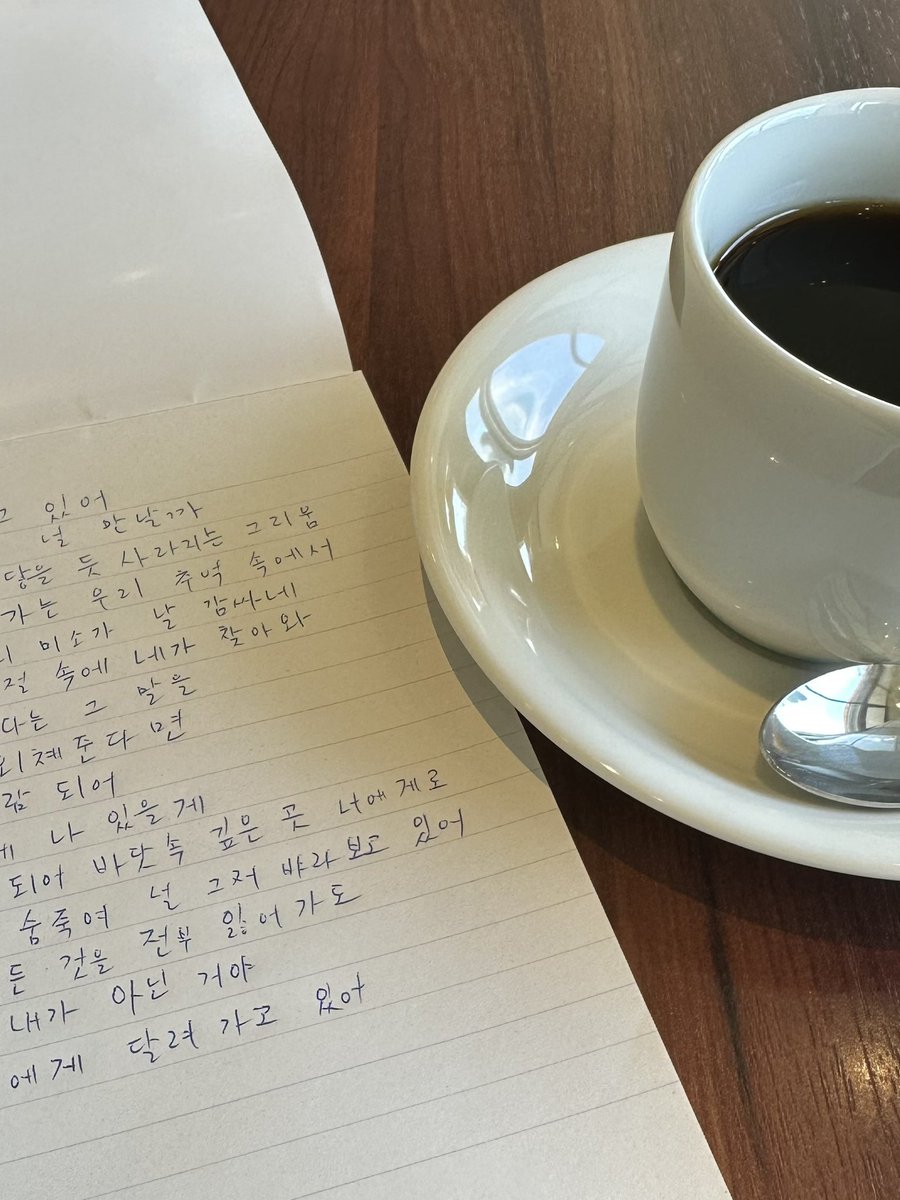 고 있어
널 만날까
닿을 듯 사라지는 그리움
가는 우리 추억 속에서
미소가 날 감싸네
절 속에 네가 찾아와
다는 그 말을
외쳐준다면
람 되어
게 나 있을게
되어 바닷속 깊은 곳 너에게로
숨죽여 널 그저 바라보고 있어
든 것을 전부 잃어가도
내가 아닌 거야
에게 달려가고 있어